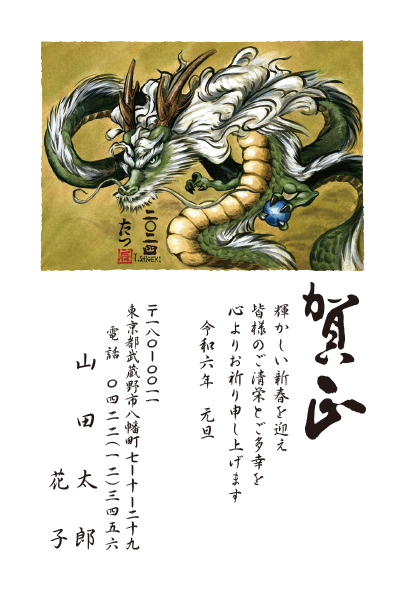 二〇二四
たつ
T.SHIGEKI
賀正
輝かしい新春を迎え
皆様のご清栄とご多幸を
心よりお祈り申し上げます
令和六年 元旦
〒一八〇-〇〇一一
東京都武蔵野市八幡町七-十-二十九
電話 〇四二二(一二)三四五六
山田太郎
花子